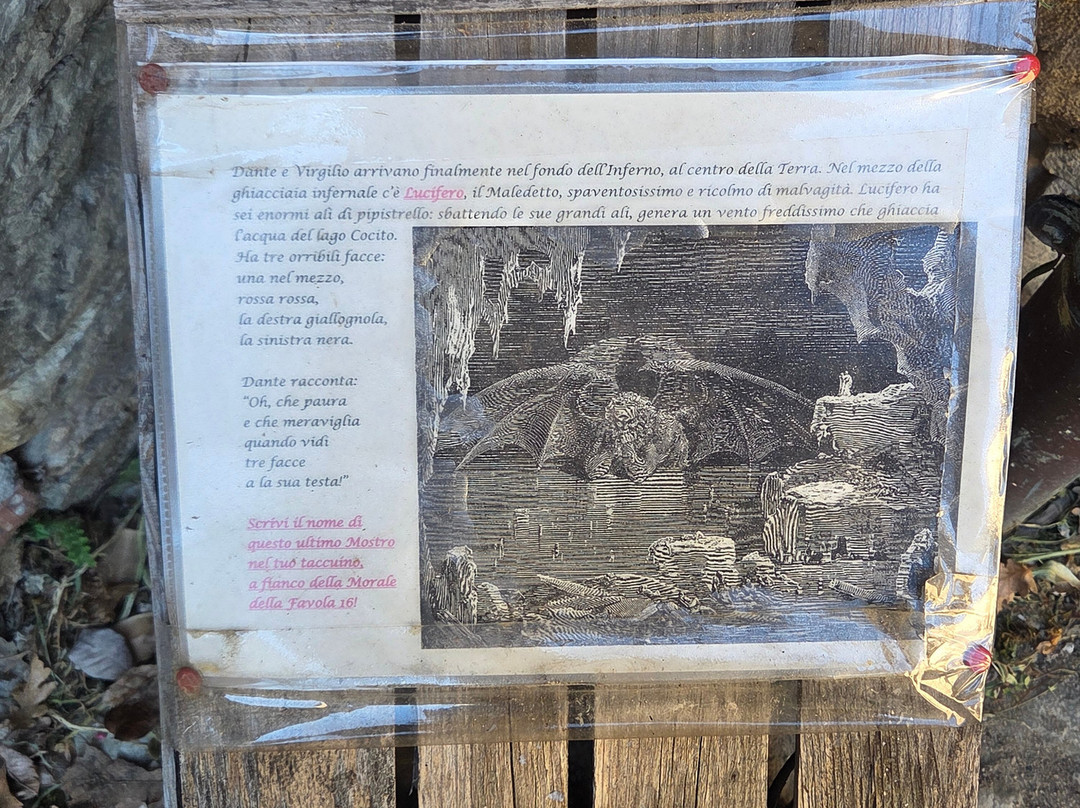 Dante e Virgilio arrivano finalmente nel fondo dell'Inferno, al centro della Terra. Nel mezzo della
ghiacciaia infernale c'è Lucifero, il Maledetto, spaventosissimo e ricolmo di malvagità. Lucifero ha
sei enormi ali di pipistrello: sbattendo le sue grandi ali, genera un vento freddissimo che ghiaccia
l'acqua del lago Cocito.
Ha tre orribili facce:
una nel mezzo,
rossa rossa,
la destra giallognola,
la sinistra nera.
Dante racconta:
"Oh, che paura
e che meraviglia
quando vidi
tre facce
a la sua testa!"
Scrivi il nome di
questo ultimo Mostro
nel tuo taccuino,
a fianco della Morale
della Favola 16!